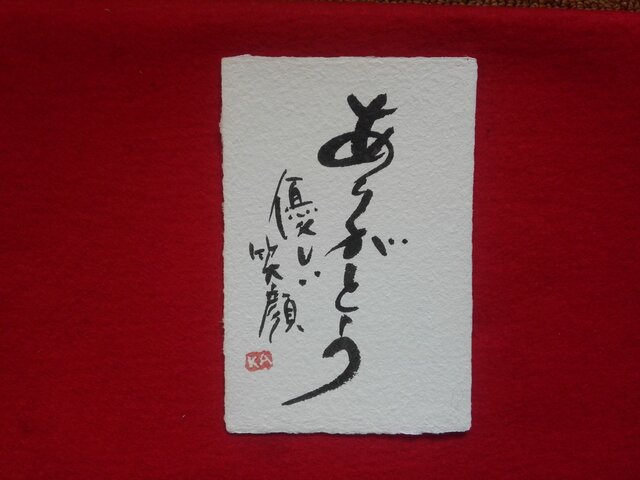 ありがとう
優しい
笑顔
KA